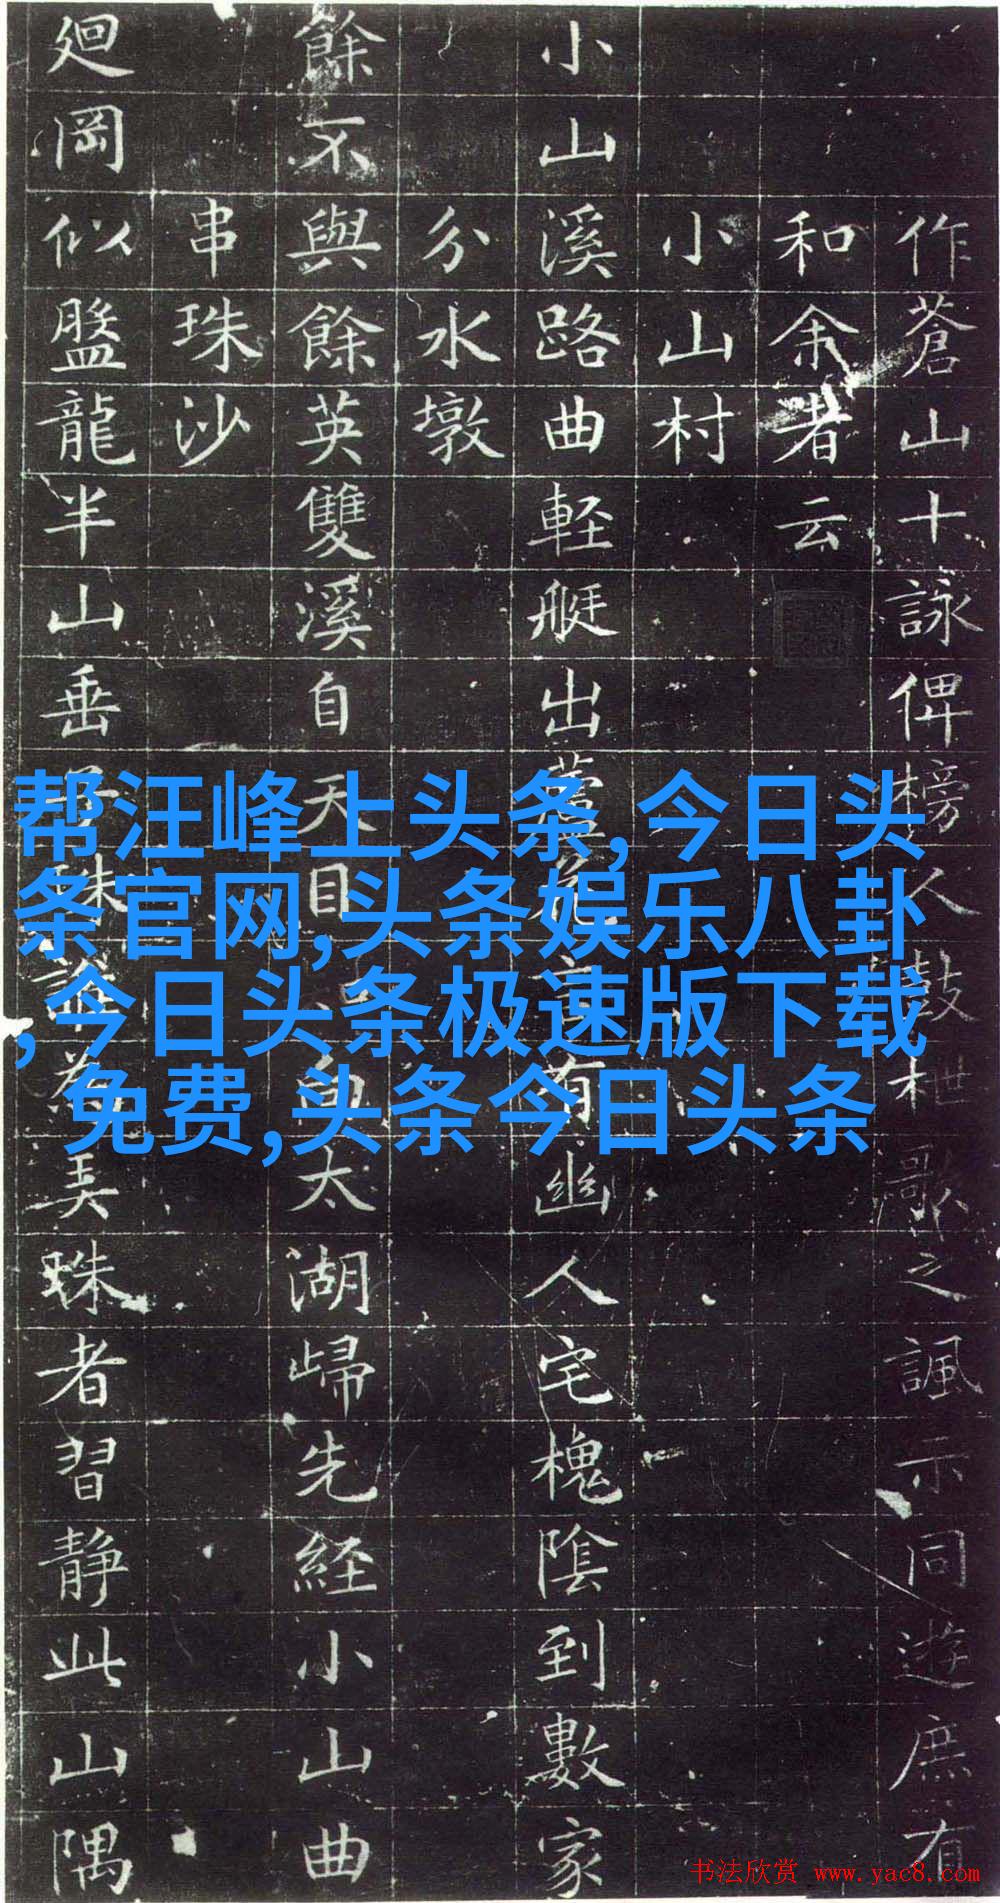 作蒼山十詠俾榜人鼓枻歌之諷示同遊庶有
和余者云
小山村
小山溪路曲軽艇出有幽人宅槐陰到數家
分水墩
餘不與餘英雙溪自天目自太湖歸先経小山曲
串珠沙
廻岡似盤龍半山垂珠誰為美珠者習静此山隅
帮汪峰上头条,今日头
条官网,头条娱乐八卦
,今日头条极速版下载
免费,头条今日头条
书法欣赏 www.yac8.com